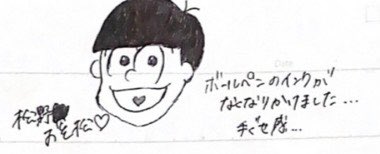 松野
おそ松♡
ボールペンのインクが
なくなりかけました...
手ぐせ感...
Date